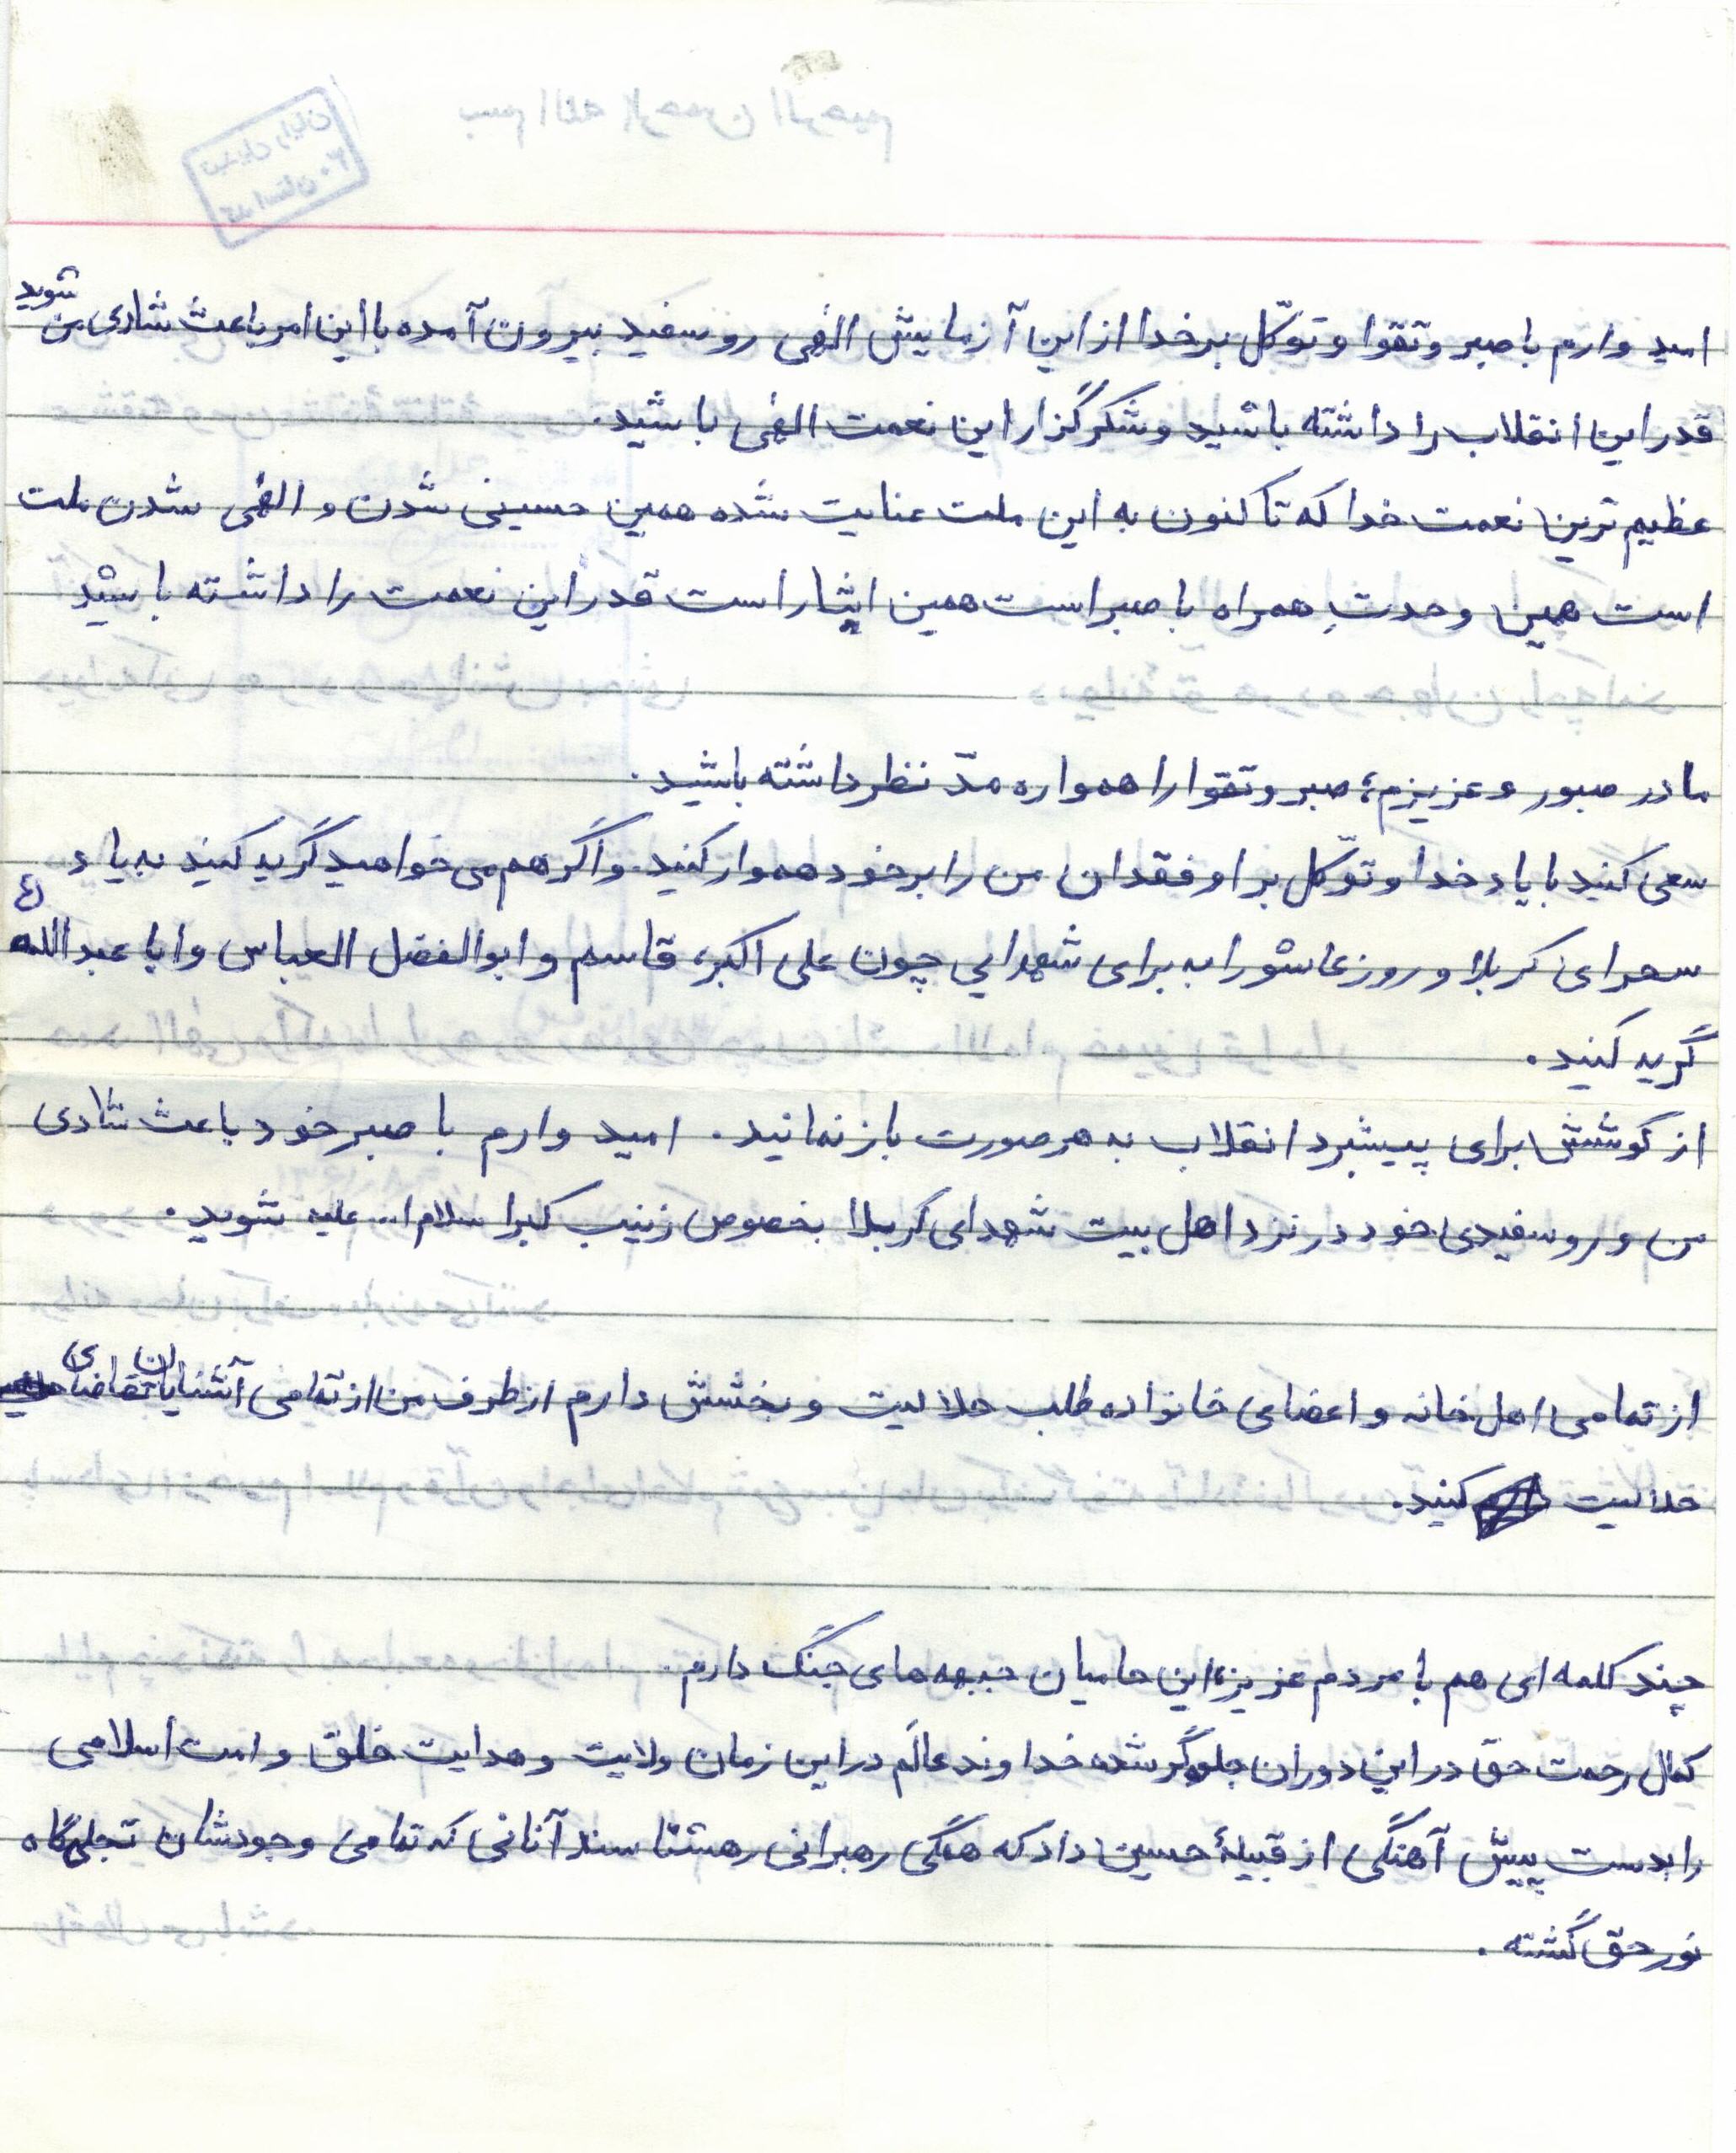 امید وارم با صبر و تقوا و توکّل بر خدا از این آزمایش الهی رو سفید بیرون آمده با این امر باعث شادی من شوید
قدر این انقلاب را داشته باشید و شکرگزار این نعمت الهی باشید.
عظیم ترین نعمت خدا که تاکنون به این ملت عنایت شده همین حسینی شدن و الهی شدن ملت
است همین وحدتِ همراه با صبر است همین ایثار است قدر این نعمت را داشته باشید
مادر صبور و عزیزم؛ صبر و تقوا را همواره مدّ نظر داشته باشید.
سعی کنید با یاد خدا و توکّل بر او فقدان من را بر خود هموار کنید. و اگر هم می خواهید گریه کنید به یاد
سحرای کربلا و روز عاشورا به برای شهدایی چون علی اکبر، قاسم و ابوالفضل العباس و ابا عبدالله ع
گریه کنید.
از کوشش برای پیشبرد انقلاب به هر صورت باز نمانید. امید وارم با صبر خود باعث شادی
من و رو سفیدی خود در نزد اهل بیت شهدای کربلا بخصوص زینب کبرا سلام ا... علیه شوید.
از تمامی اهل خانه و اعضای خانواده طلب حلالیت و بخشش دارم از طرف من از تمامی آشنایان تقاضای
حلالیت کنید.
چند کلمه ای هم با مردم عزیز، این حامیان جبهه های جنگ دارم.
کمال رحمت حق در این دوران جلوگر شده خداوند عالَم در این زمان ولایت و هدایت خلق و امت اسلامی
را بدست پیش آهنگی از قبیلۀ حسین داد که همگی رهبرانی رهشناسند آنانی که تمامی وجودشان تجلی گاه
نور حق گشته.